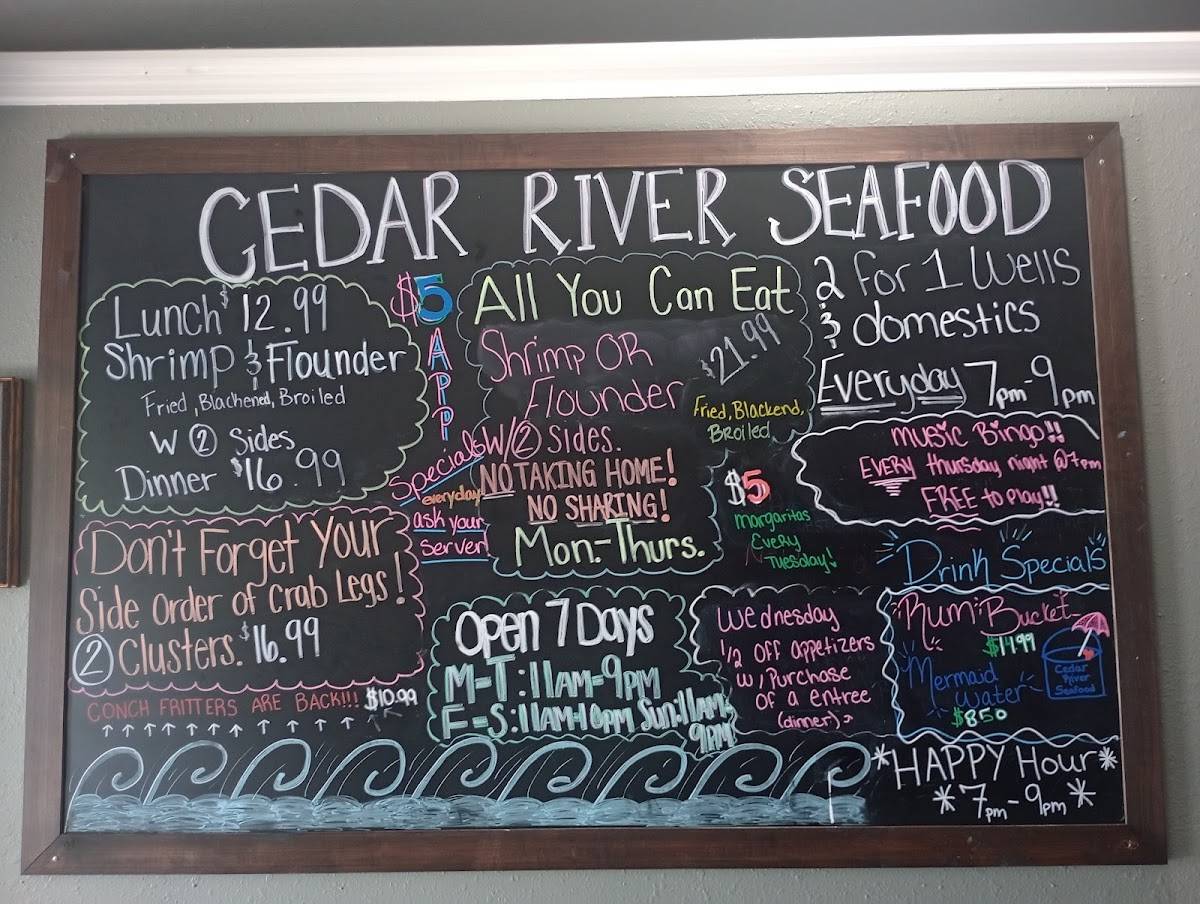 CEDAR RIVER SEAFOOD
Lunch $12.99
Shrimp & Flounder
Fried, Blackened, Broiled
W ② Sides
Dinner $16.99
$5
APP
Specials
everyday
ask your
server!
All You Can Eat
Shrimp OR
Flounder
$21.99
Fried, Blackend,
Broiled
W/② Sides.
NO TAKING HOME!
NO SHARING!
Mon.-Thurs.
2 for 1 Wells
& domestics
Everyday 7pm-9pm
Music Bingo!!
EVERY thursday night @7pm
FREE to play!!
$5
Margaritas
Every
Tuesday!
Don't Forget Your
Side order of Crab Legs!
② Clusters. $16.99
CONCH FRITTERS ARE BACK!!! $10.99
Open 7 Days
M-T: 11AM-9PM
F-S: 11AM-10PM Sun: 11AM-
9PM
Wednesday
1/2 OFF Appetizers
w/ Purchase
of a entree
(dinner)
Drink Specials
Rum Bucket
$14.99
Mermaid
Water
$8.50
Cedar
River
Seafood
*HAPPY Hour*
*7pm-9pm*